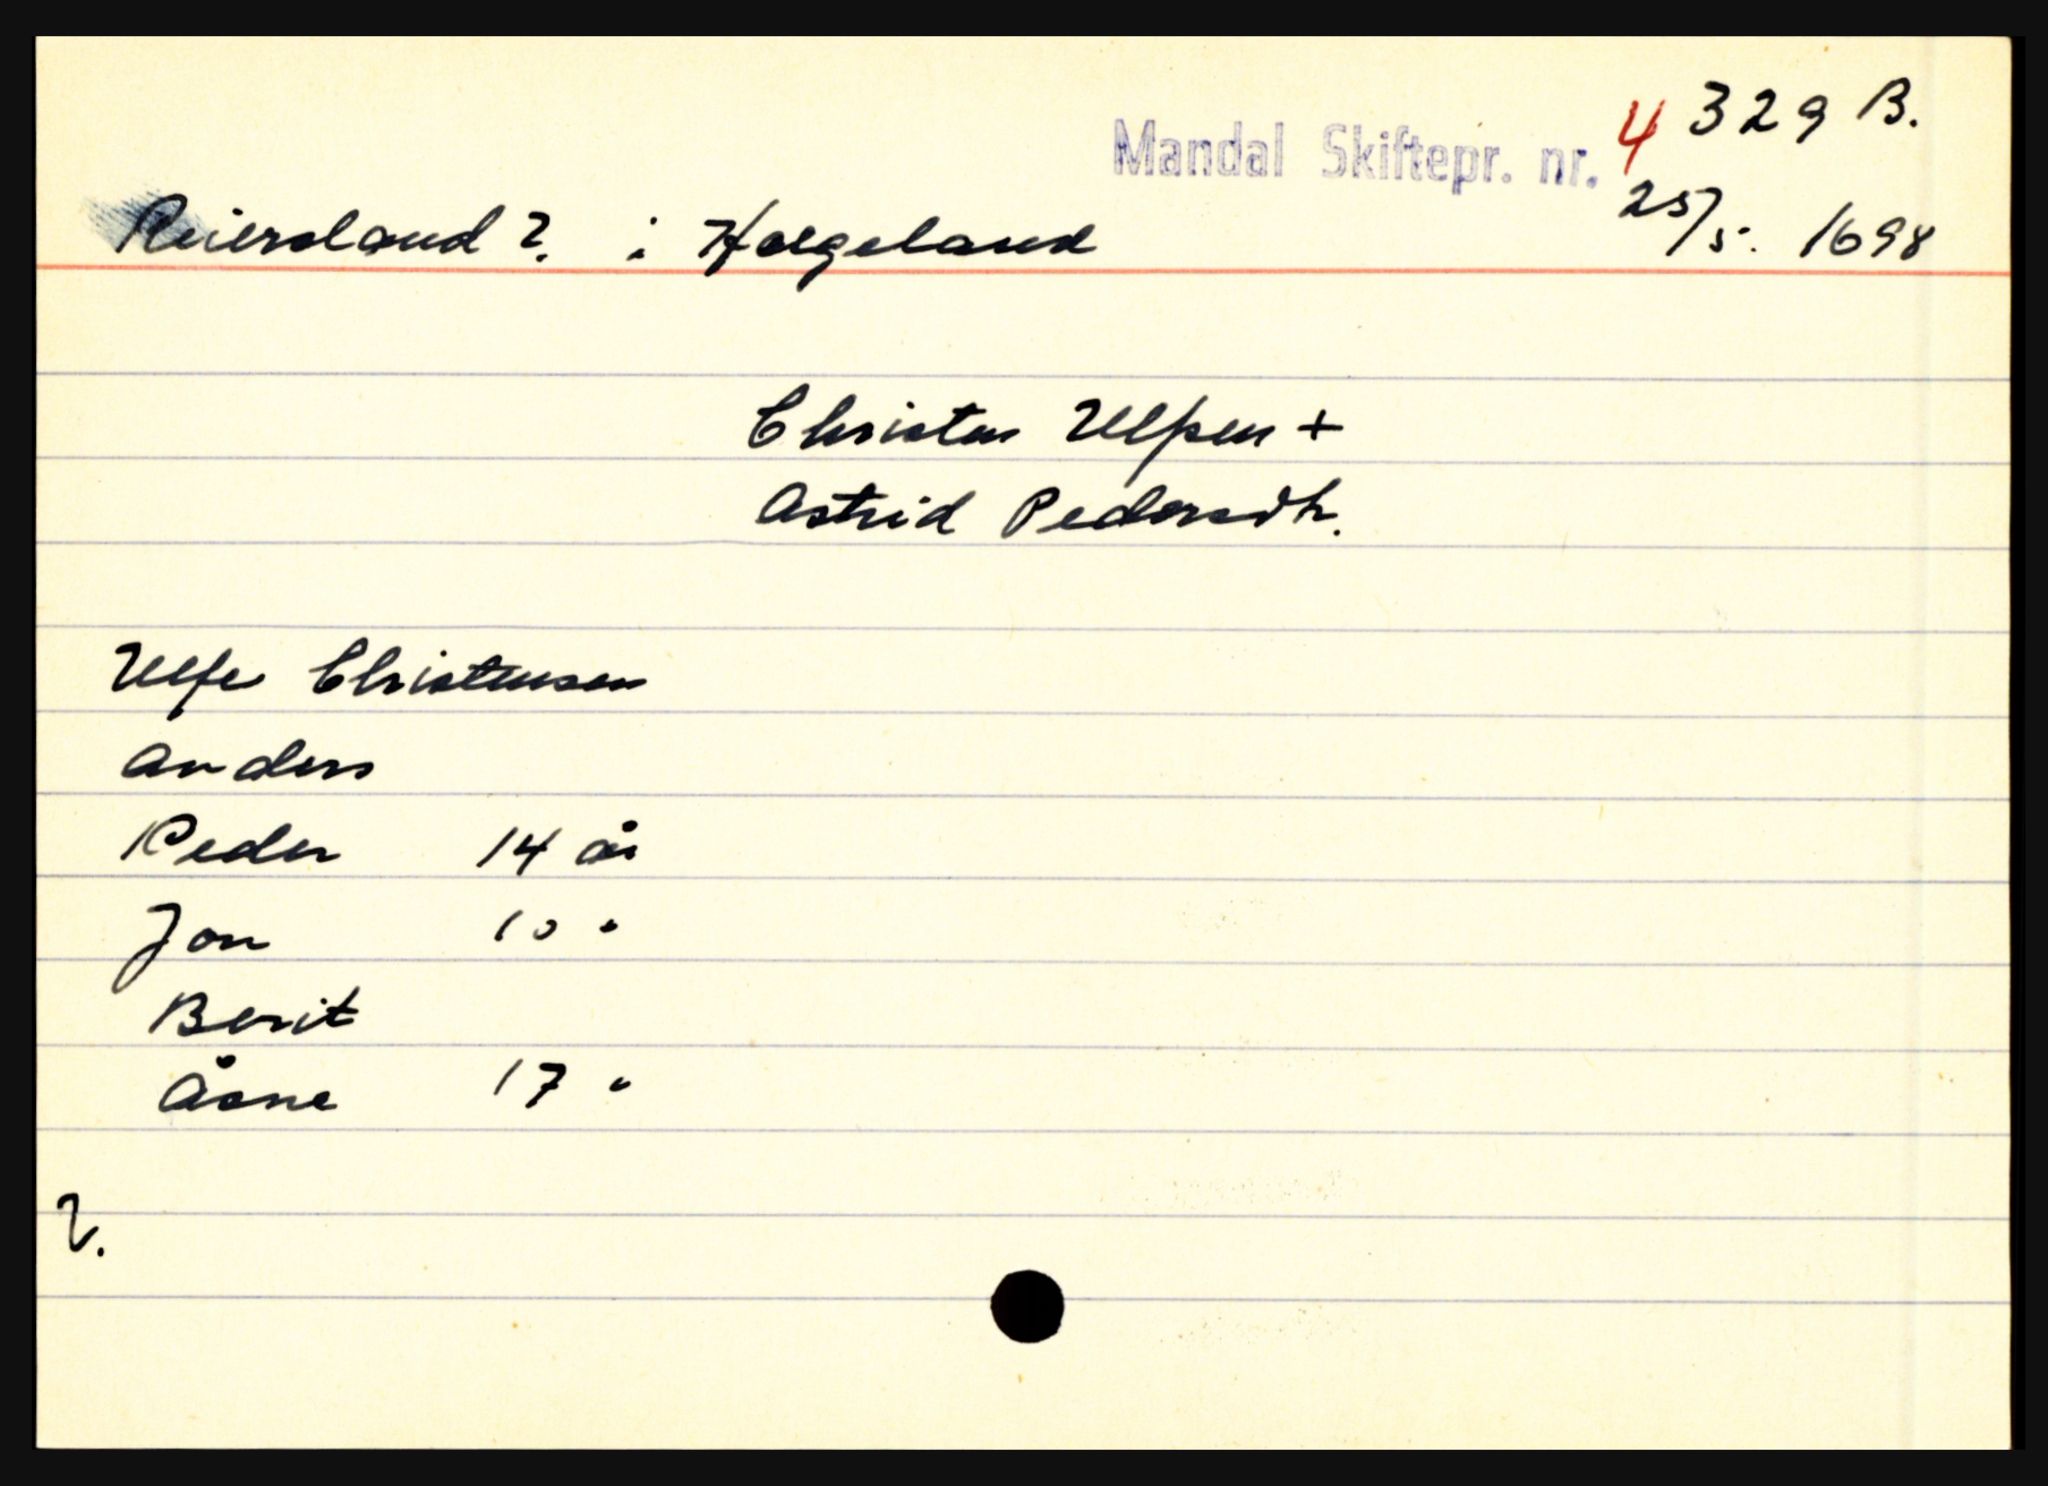 Mandal Skiftepr. nr. 4 329 B.
Reiersland ? i Hægeland 25/5. 1698
Christen Ulfsen +
Astrid Pedersdtr.
Ulfe Christensen
Anders
Peder 14 år
Jon 10 "
Berit
Åsne 17 "
?.